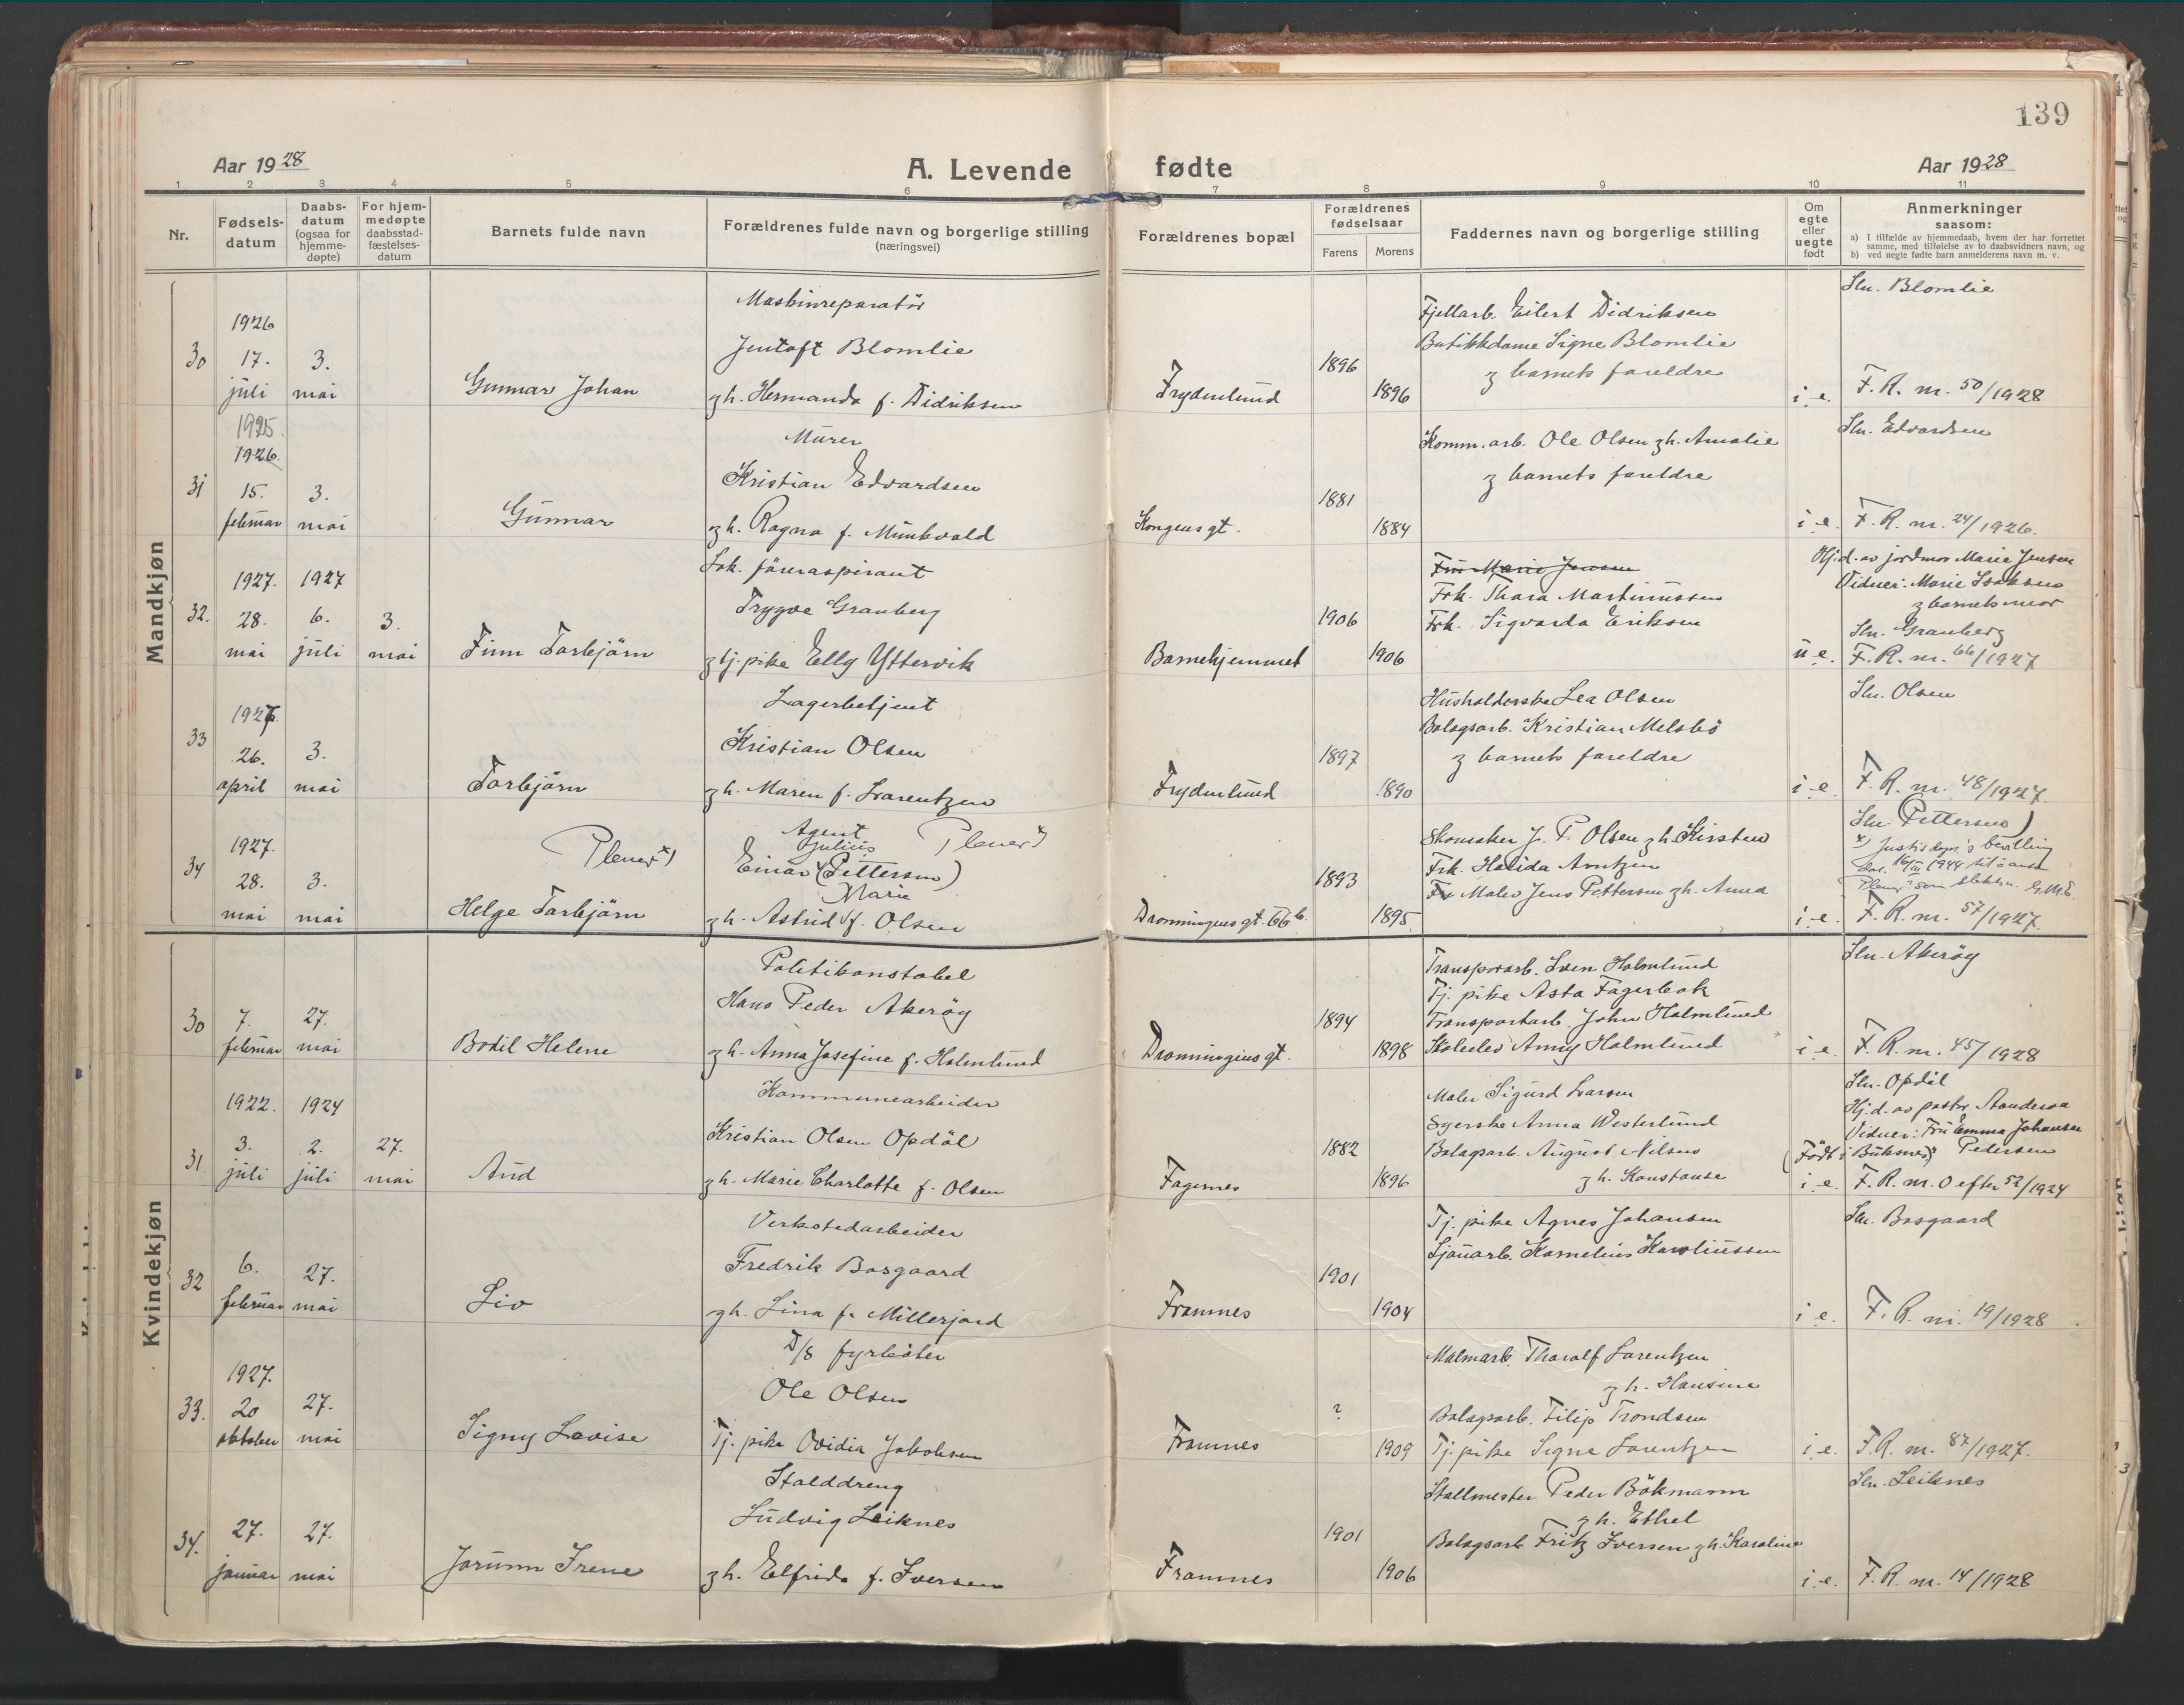 139
Aar 1928
A. Levende fødte
Aar 1928
1 2 3 4 5 6 7 8 9 10 11
Nr.
Fødsels-
datum
Daabs-
datum
(ogsaa for
hjemme-
døpte)
For hjem-
medøpte
daabsstad-
fæstelses-
datum
Barnets fulde navn
Forældrenes fulde navn og borgerlige stilling
(næringsvei)
Forældrenes bopæl
Forældrenes
fødselsaar
Farens
Morens
Faddernes navn og borgerlige stilling
Om
egte
eller
uegte
født
Anmerkninger
saasom:
a) I tilfælde av hjemmedaab, hvem der har forrettet
samme, med tilføielse av to daabsvidners navn, og
b) ved uegte fødte barn anmelderens navn m. v.
Mandkjøn
30
1926
17.
juli
3.
mai
Gunnar Johan
Maskinreparatör
Jentoft Blomlie
g h. Hermanda f. Didriksen
Frydenlund
1896
1896
Fjellarb. Eilert Didriksen
Butikkdame Signe Blomlie
g barnets foreldre
i e.
Sln. Blomlie
F. R. nr. 50/1928
31
1925.
1926.
15.
februar
3.
mai
Gunnar
Murer
Kristian Edvardsen
g h. Ragna f. Munkvold
Kongens gt.
1881
1884
Komm. arb. Ole Olsen g h. Amalie
g barnets foreldre
i e.
Sln. Edvardsen
F. R. nr. 24/1926.
32.
1927.
28.
mai
1927
6.
juli
3.
mai
Finn Torbjörn
Lok. föreraspirant
Trygve Granberg
g tj. pike Elly Yttervik
Barnehjemmet
1906
1906
Fru Marie Jensen
Frk. Thora Martinussen
Frk. Sigvarda Eriksen
u e.
Hj. d. av jordmor Marie Jensen
Vidner: Marie Isaksen
g barnets mor
Sln. Granberg
F. R. nr. 66/1927
33
1927
26.
april
3.
mai
Torbjörn
Lagerbetjent
Kristian Olsen
g h. Maren f. Lorentzen
Frydenlund
1897
1890
Husholderske Lea Olsen
Bolagsarb. Kristian Melsbö
g barnets foreldre
i e.
Sln. Olsen
F. R. nr. 48/1927.
34
1927.
28.
mai
3.
mai
Plener x)
Helge Torbjörn
Agent
Julius Plener x)
Einar (Pettersen)
Marie
g h. Astrid f. Olsen
Dronningens gt. 66 b.
1893
1895
Skomaker J. P. Olsen g h. Kirsten
Frk. Halida Arntzen
Maler Jens Pettersen g h. Anna
i e.
Sln. Pettersen)
x) Justisdepr.'s bevilling
1944 til å anta
"Plener" som slektsn.
F. R. nr. 57/1927.
Kvindekjøn
30
7.
februar
27.
mai
Bodil Helene
Politikonstabel
Hans Peder Akeröy
g h. Anna Josefine f. Holmlund
Dronningens gt.
1894
1898
Transportarb. Sven Holmlund
Tj. pike Asta Fagerbak
Transportarb. John Holmlund
Skoleelev Anny Holmlund
i e.
Sln. Akeröy
F. R. nr. 45/1928
31.
1922.
3.
juli
1924
2.
juli
27.
mai
Aud
Kommunearbeider
Kristian Olsen Opdöl
g h. Marie Charlotte f. Olsen
Fagernes
1882
1896
Maler Sigurd Larsen
Syerske Anna Westerlund
Bolagsarb. August Nilsen
g h. Konstanse
i e.
Sln. Opdöl
Hj. d. av pastor
Vidner: Fru Emma Johansen
Pedersen
(Födt i Buksnes)
F. R. nr. 0 efter 52/1924
32
6.
februar
27.
mai
Liv
Verkstedarbeider
Fredrik Bosgaard
g h. Lina f. Millerjord
Framnes
1901
1904
Tj. pike Agnes Johansen
Sjöuarb. Kornelius Karoliussen
i e.
Sln. Bosgaard
F. R. nr. 19/1928
33.
1927.
20
oktober
27.
mai
Signy Lovise
D/S fyrböter
Ole Olsen
Tj. pike Ovidia Jakobsen
Framnes
?
1909
Malmarb. Tharalf Lorentzen
g h. Hansine
Bolagsarb. Filip Trondsen
Tj. pike Signe Lorentzen
i e.
F. R. nr. 87/1927.
34.
27.
januar
27.
mai
Jorunn Irene
Stalddreng
Ludvig Leiknes
g h. Elfrida f. Iversen
Framnes
1901
1906
Stallmester Peder Bökmann
g h. Ethel
Bolagsarb Fritz Iversen g h. Karoline
i e.
Sln. Leiknes
F. R. nr. 14/1928